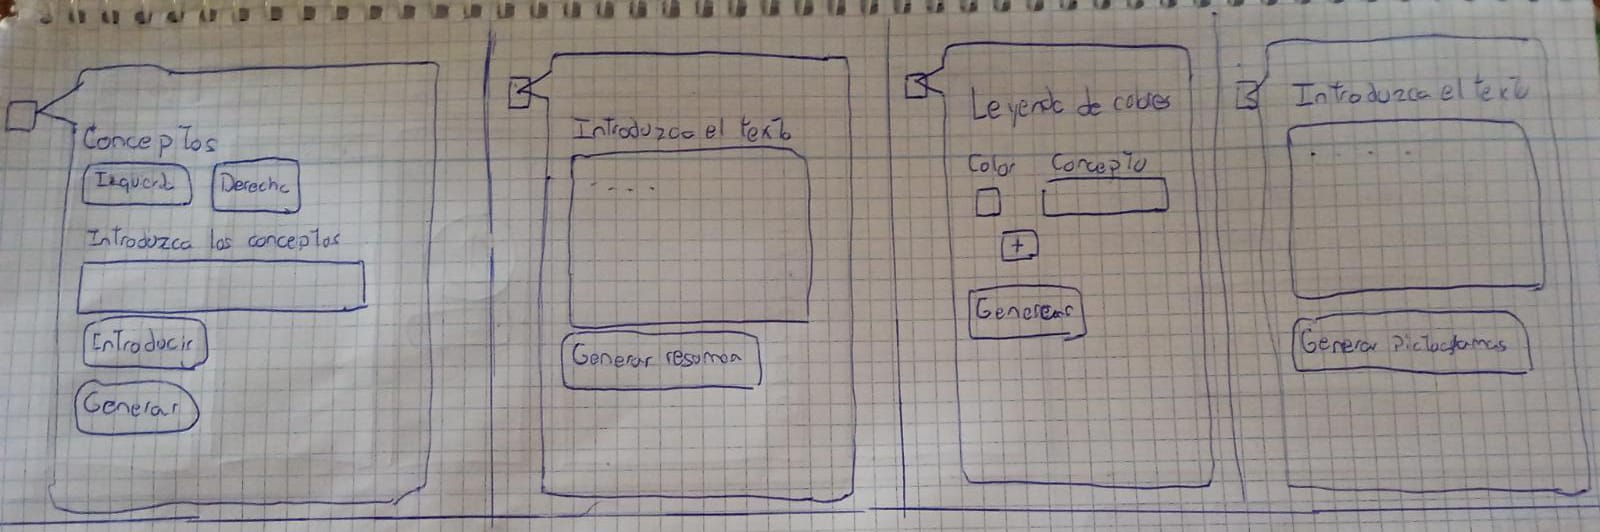 Conceptos
Izquierda Derecha
Introduzca los conceptos
Introducir
Generar
Introduzca el texto
Generar resumen
Leyenda de colores
Color Concepto
+
Generar
Introduzca el texto
Generar pictogramas